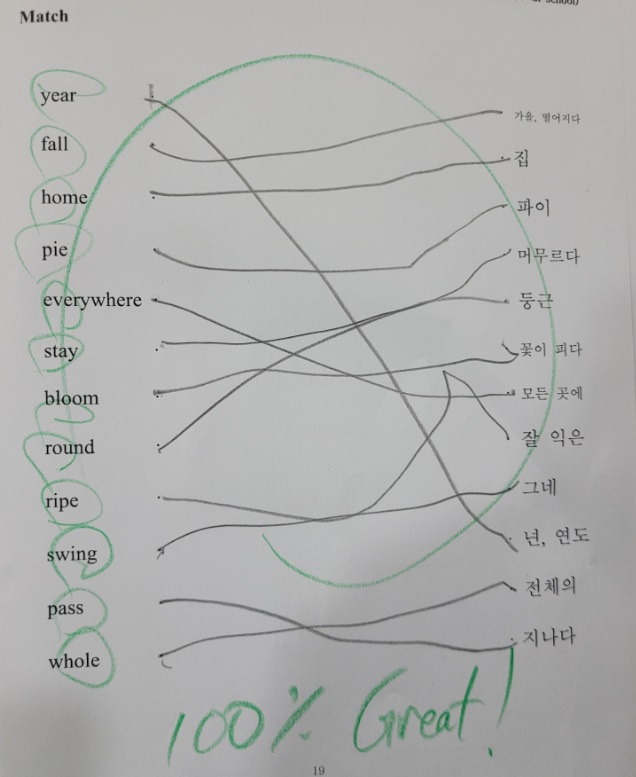 Match
year
가을, 떨어지다
fall
집
home
파이
pie
머무르다
everywhere
둥근
stay
꽃이 피다
bloom
모든 곳에
round
잘 익은
ripe
그네
swing
년, 연도
pass
전체의
whole
지나다
100% Great!
19